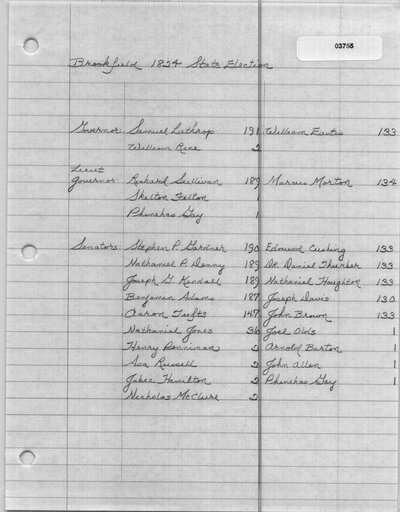 03765
Brookfield 1824 State Election
Governor: Samuel Lathrop 191 William Eustis 133
William Rice 2
Lieut
Governor: Richard Sullivan 189 Marcus Morton 134
Skelton Felton 1
Phinehas Gay 1
Senators: Stephen P. Gardner 190 Edmund Cushing 133
Nathaniel P. Denny 189 Dr. Daniel Thurber 133
Joseph G. Kendall 189 Nathaniel Houghton 133
Benjamin Adams 187 Joseph Davis 130
Aaron Tufts 147 John Brown 133
Nathaniel Jones 36 Joel Olds 1
Henry Penniman 2 Arnold Barton 1
Asa Russell 2 John Allen 1
Jabez Hamilton 2 Phinehas Gay 1
Nicholas McClure 2